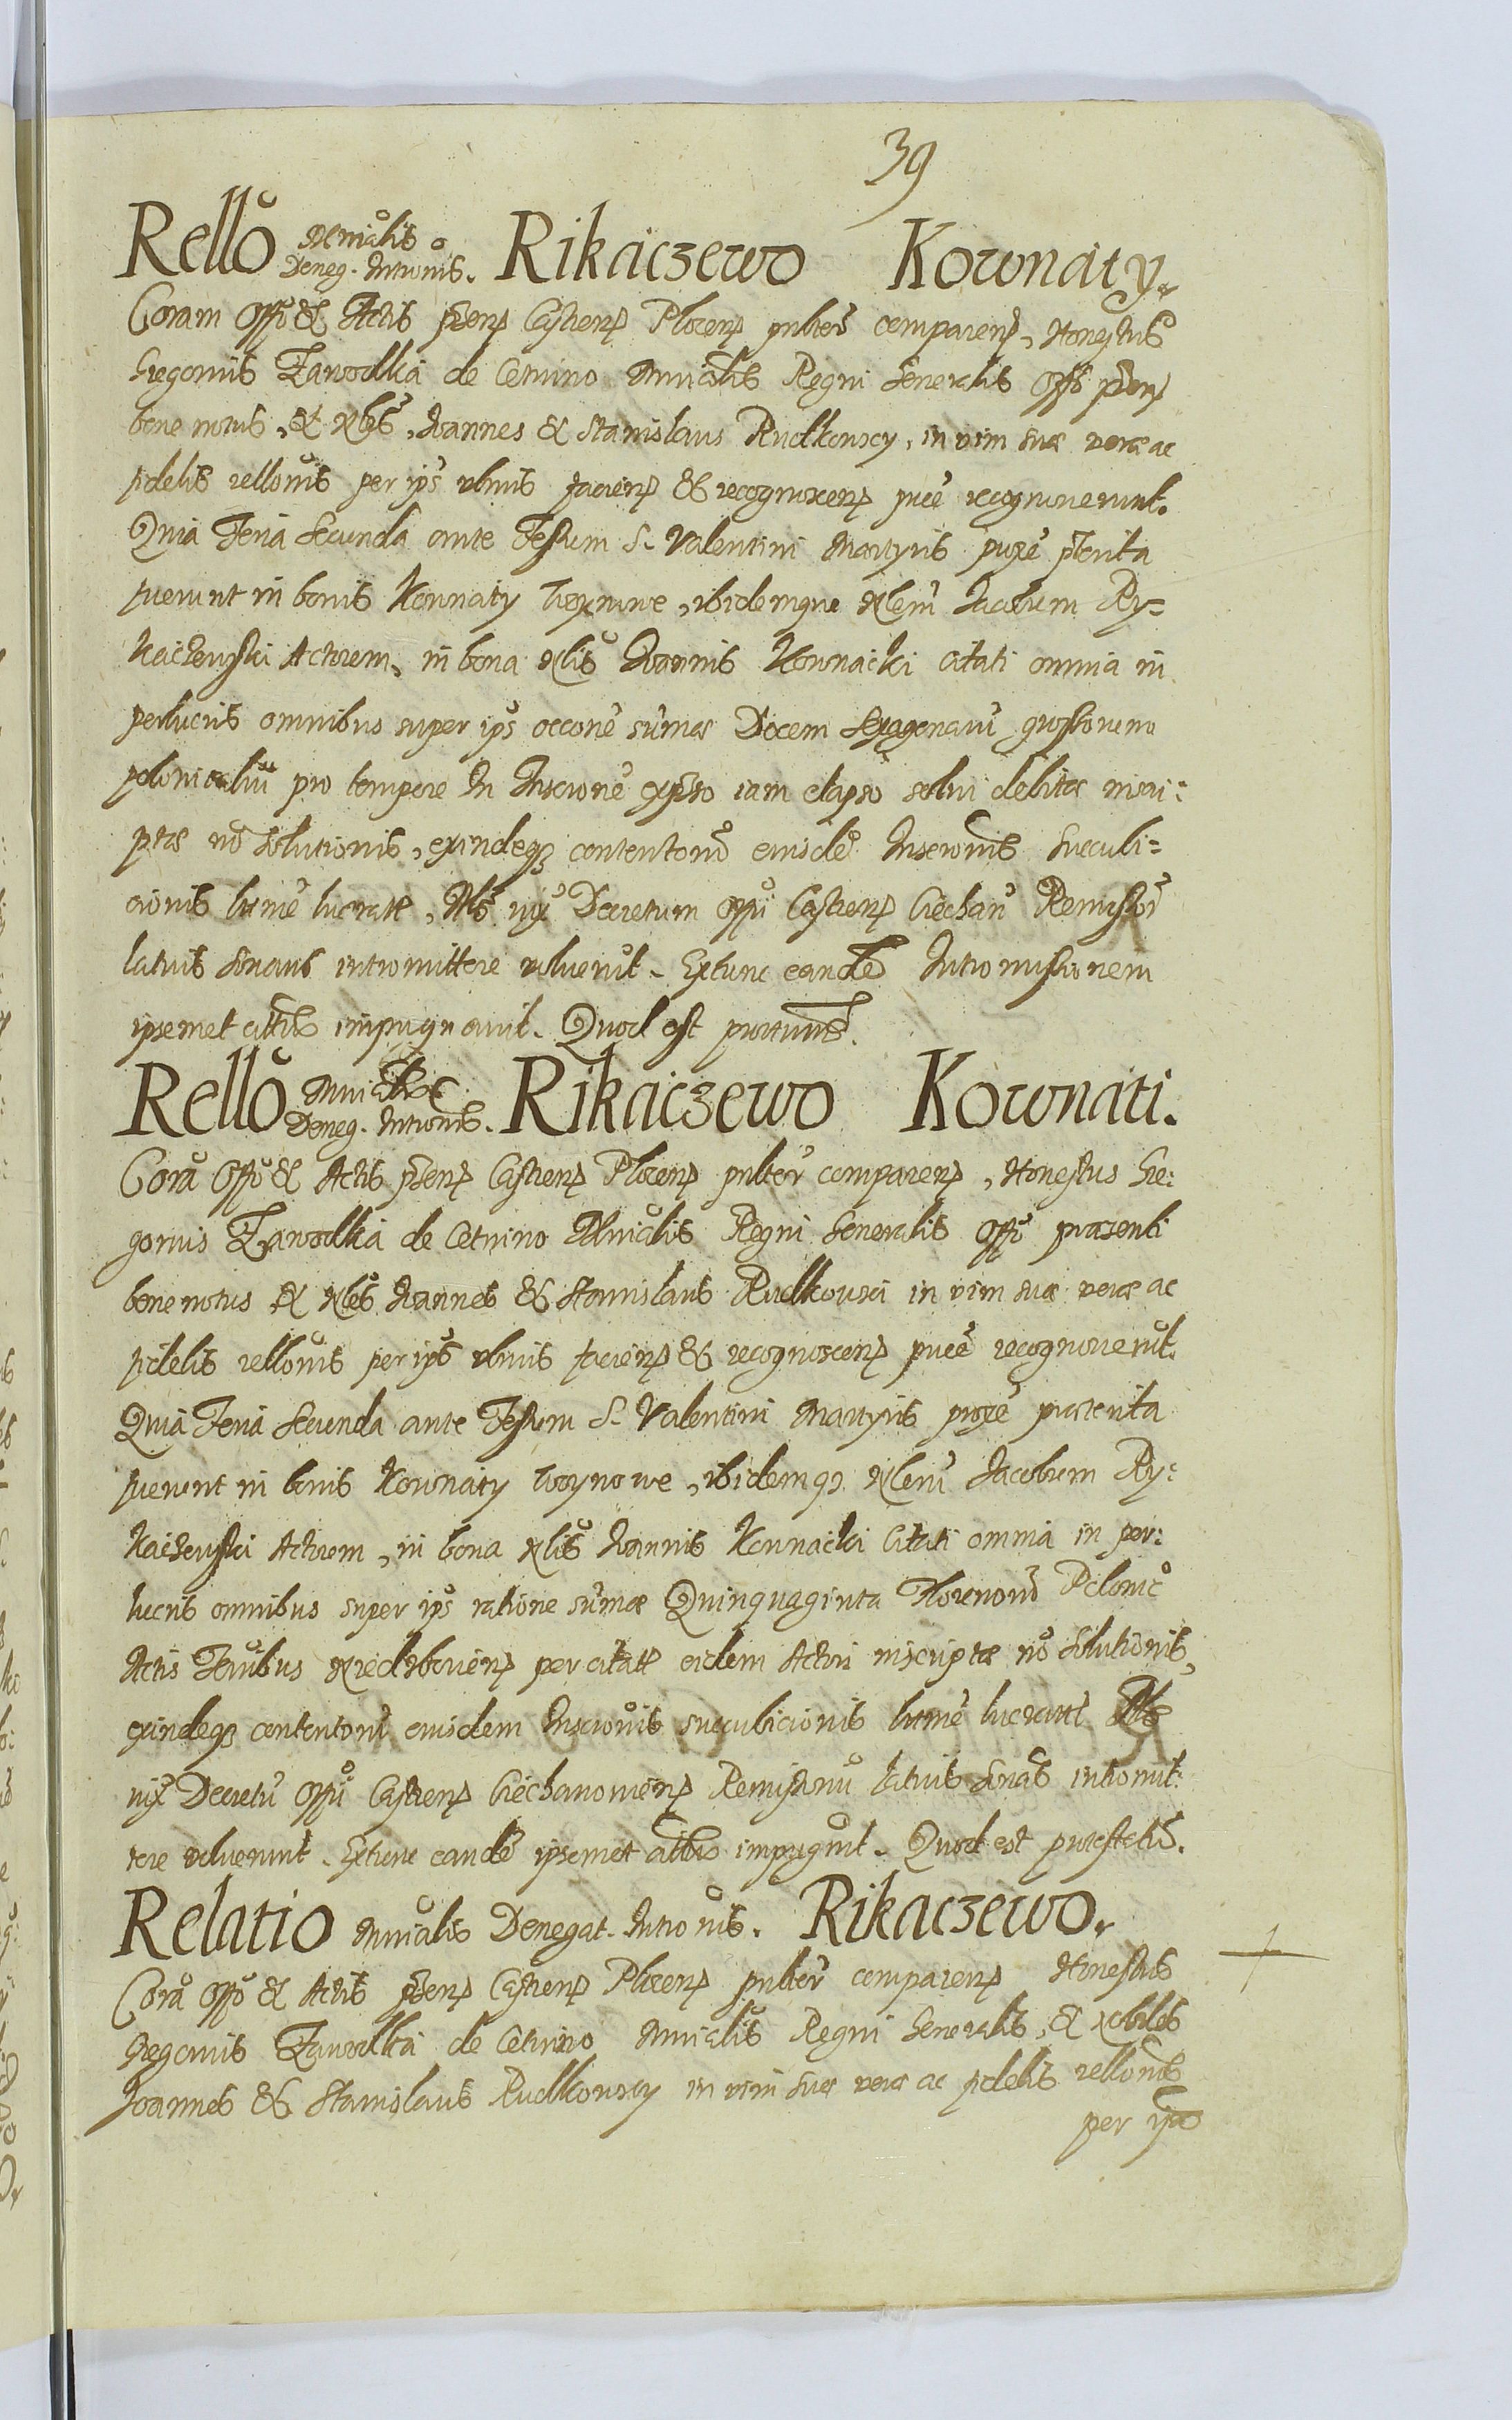 39
Rello Mnialis Deneg. Intronis. Rikaczewo Kownaty.
Coram Offo & Actis pñn Castren Plocen pnbter comparen, Honestus
Gregorius Zawodka de Cetnino Mnialis Regni Generalis Offo pñn
bene notus, & Nles, Joannes & Stanislaus Rudkowscy, in vim suæ veræ ac
fidelis rellonis per ips ultimis facien & recognoscen puce recognoverunt.
Quia Feria Secunda ante Festum S. Valentini Martyris pxe pterita
fuerunt in bonis Kownaty Woynowe, ibidemque Nlem Jacobum Ry=
kaczewski Actorem, in bona Nlis Joannis Kownacki citati omnia in
perlucris omnibus super ips occone sumæ Decem Sexagenaru grossorum
polonicaliu pro tempore In Inscrone expso iam elapso solvi debitæ inscri:
ptæ no Solutionis, exindeq contentoru eiusde Inscronis Succubi=
cionis lucratt, Als vix Decretum Offii Castren Ciechan Remissor
latius Sonans intromittere voluerut. Extunc eande Intromissionem
ipsemet citatus impugnavit. Quod est protestatus.
Rello Mnialis Deneg. Intronis. Rikaczewo Kownati.
Cora Offo & Actis pñn Castren Plocen pnbter comparen, Honestus Gre:
gorius Zawodka de Cetnino Mnialis Regni Generalis Offo præsenti
bene notus & Nles Joannes & Stanislaus Rudkowsci in vim suæ veræ ac
fidelis rellonis per ips ultimis facien & recognoscen puce recognoverut.
Quia Feria Secunda ante Festum S. Valentini Martyris proxe præterita
fuerunt in bonis Kownaty Woynowe, ibidemq Nlem Jacobum Ry:
kaczewski Actorem, in bona Nlis Joannis Kownacki Citati omnia in per:
lucris omnibus super ips ratione sumæ Quinquaginta Florenoru Polonic
Actis per citatt eidem Actori inscriptæ no Solutionis,
exindeq contentoru eiusdem Inscronis succubicionis lucratt Als
vix Decretu Offii Castren Ciechanovien Remissoriu latius Sonans intromit:
tere voluerunt. Extunc eande ipsemet citatus impugnit. Quod est protestatus.
Relatio Mnialis Denegat. Intronis. Rikaczewo.
Cora Offo & Actis pñn Castren Plocen pnbter comparen Honestus
Gregorius Zawodka de Cetnino Mnialis Regni Generalis, & Nobiles
Joannes & Stanislaus Rudkowscy in vim suæ veræ ac fidelis rellonis
per ips